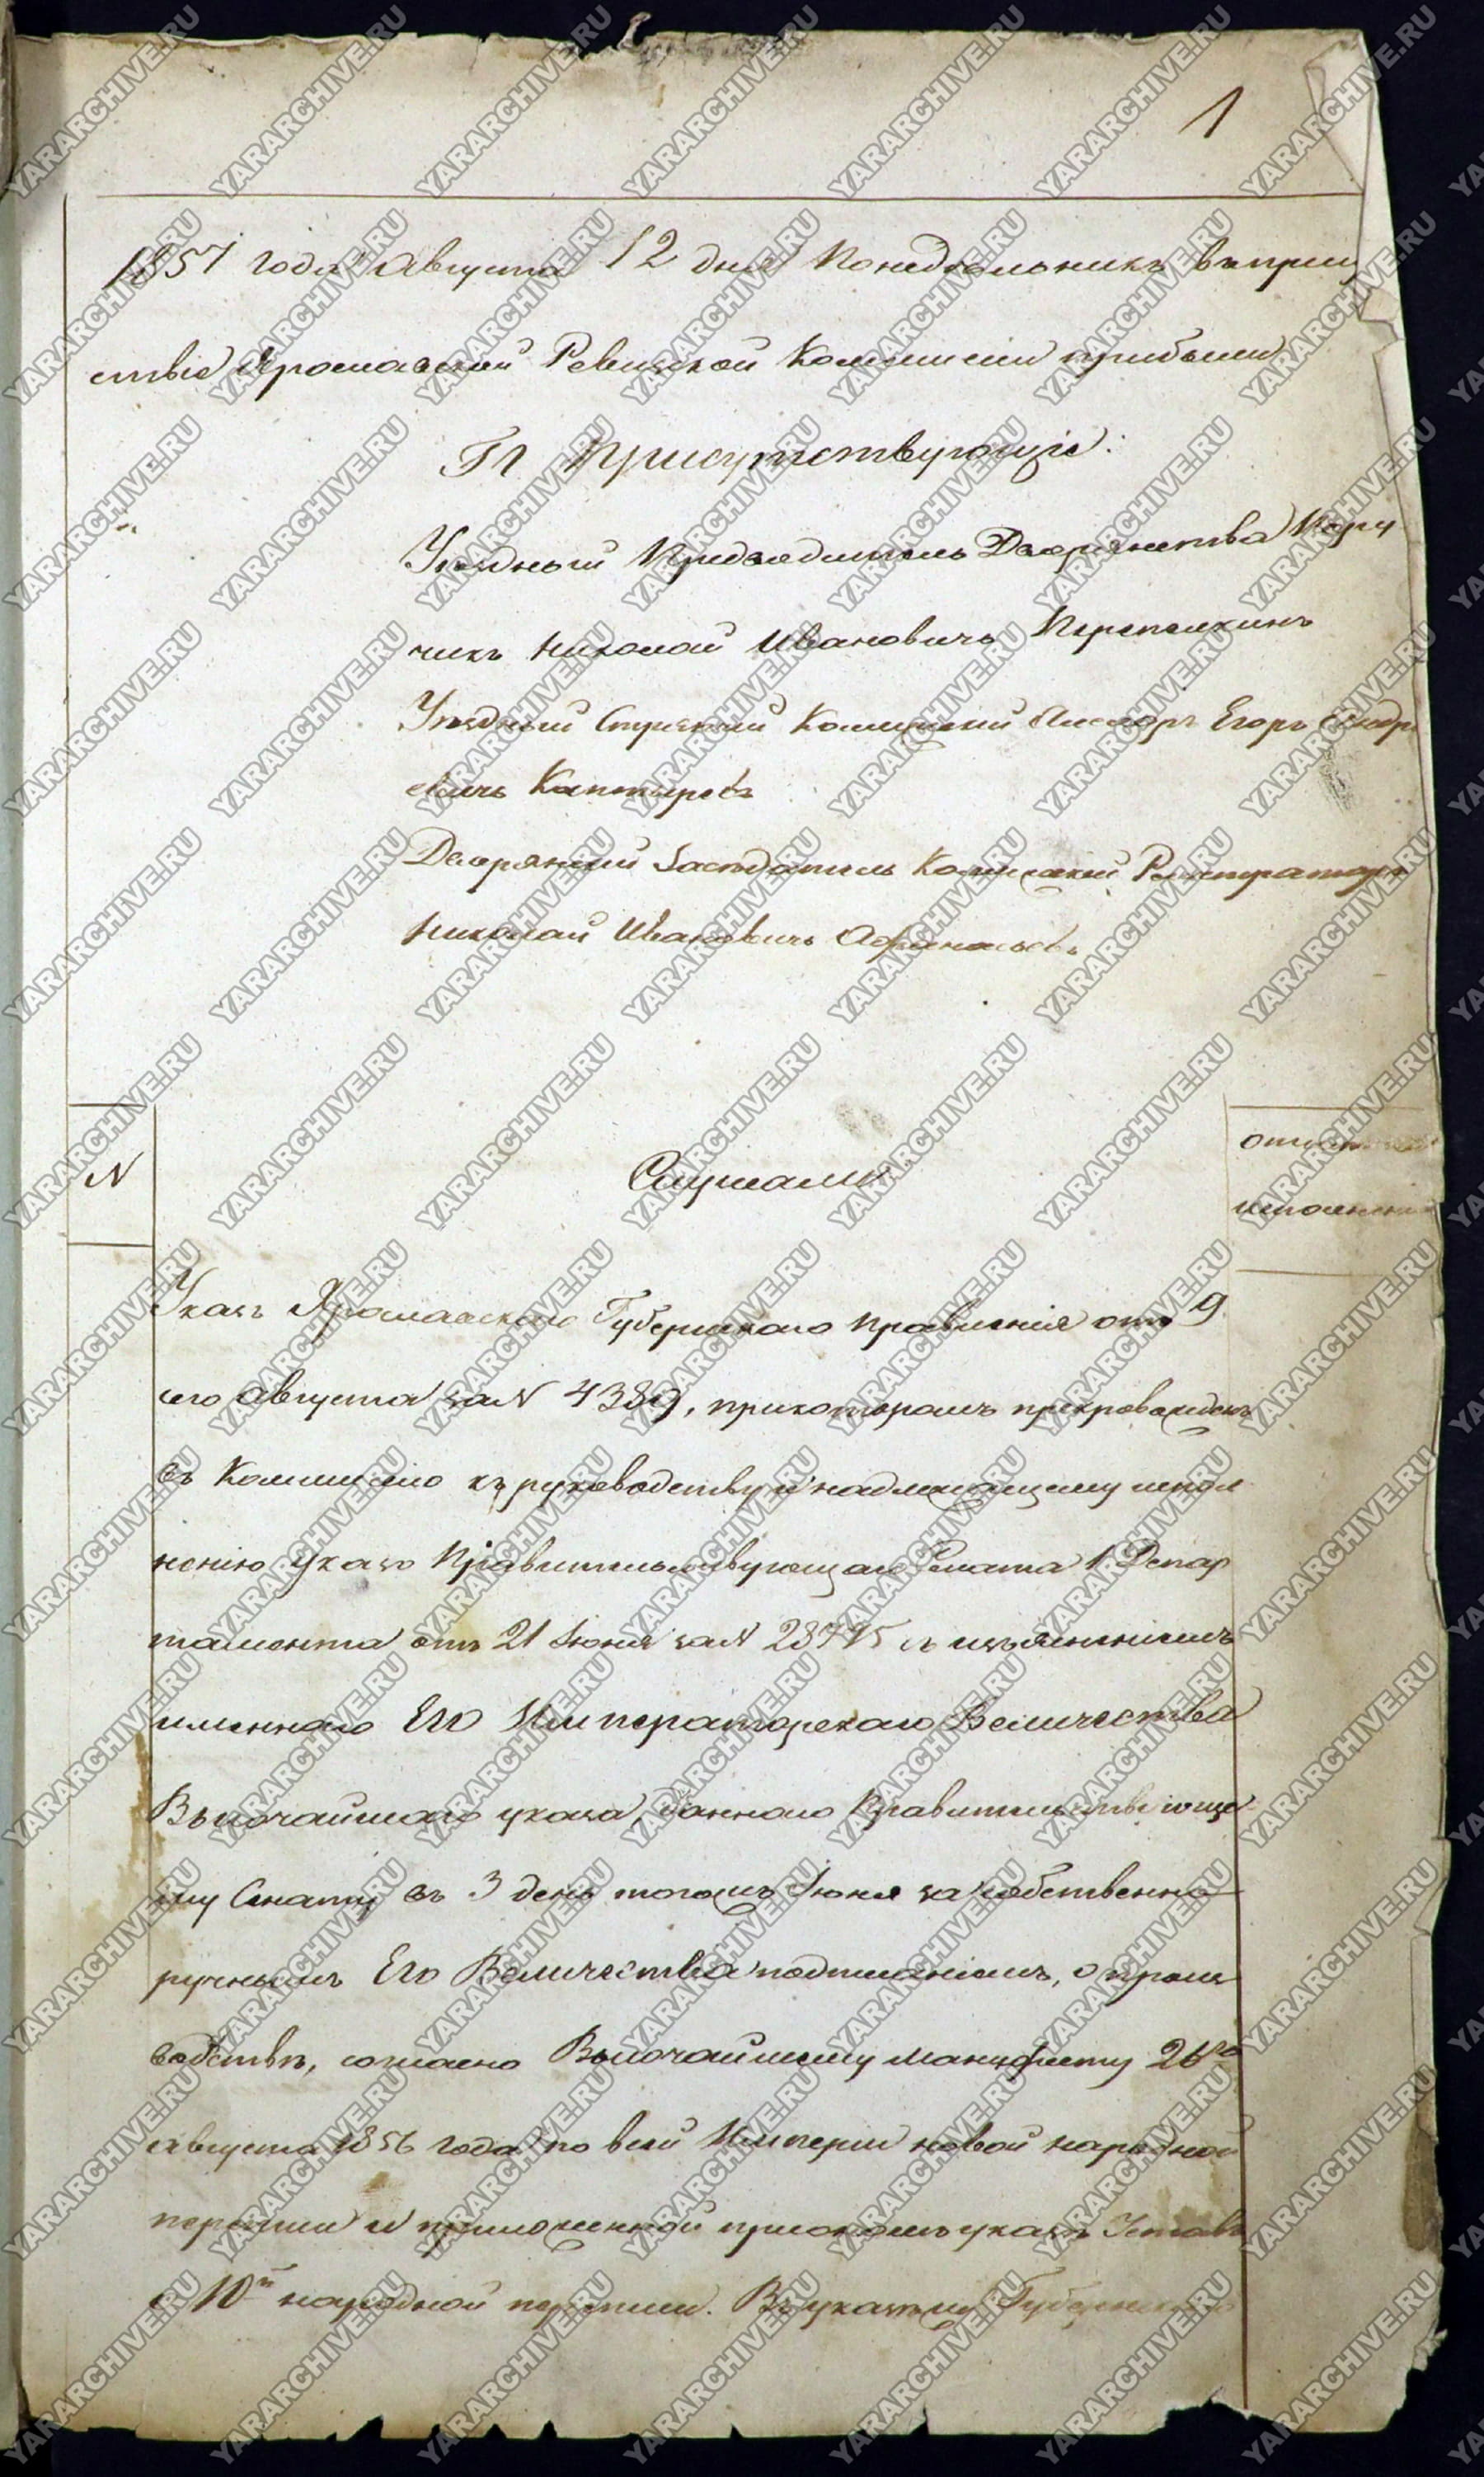 1
1857 года Августа 12 дня Понедѣльникъ въ прису
ствіе Ярославской Ревизской Коммисіи прибыли
Гг Присутствующіе:
Уѣздный Предводитель Дворянства Пору
чикъ Николай Ивановичъ Перепелкинъ
Уѣздный Стряпчій Колл. Ассесоръ Егоръ Андре
евичъ Каптыревъ
Дворянскій Засѣдатель Коллежскій Регистраторъ
Николай Ивановичъ Афанасьевъ
N
Слушали
исполненіи
Указъ Ярославскаго Губернскаго Правленія отъ 9
сего Августа за N 4389, при которомъ препровожденъ
въ Коммисію къ руководству и надлежащему испол
ненію указъ Правительствующаго Сената 1 Депар
тамента отъ 21 Іюня за N 28795 съ изъясненіемъ
именнаго Его Императорскаго Величества
Высочайшаго указа, даннаго Правительствующе
му Сенату въ 3 день того жъ Іюня за собственно
ручнымъ Его Величества подписаніемъ, о произ
водствѣ, согласно Высочайшему манифесту 26го
августа 1856 года по всей Имперіи новой народной
переписи и приложенной при ономъ указѣ Уставъ
о 10й народной переписи. Въ указѣ Губернскаго